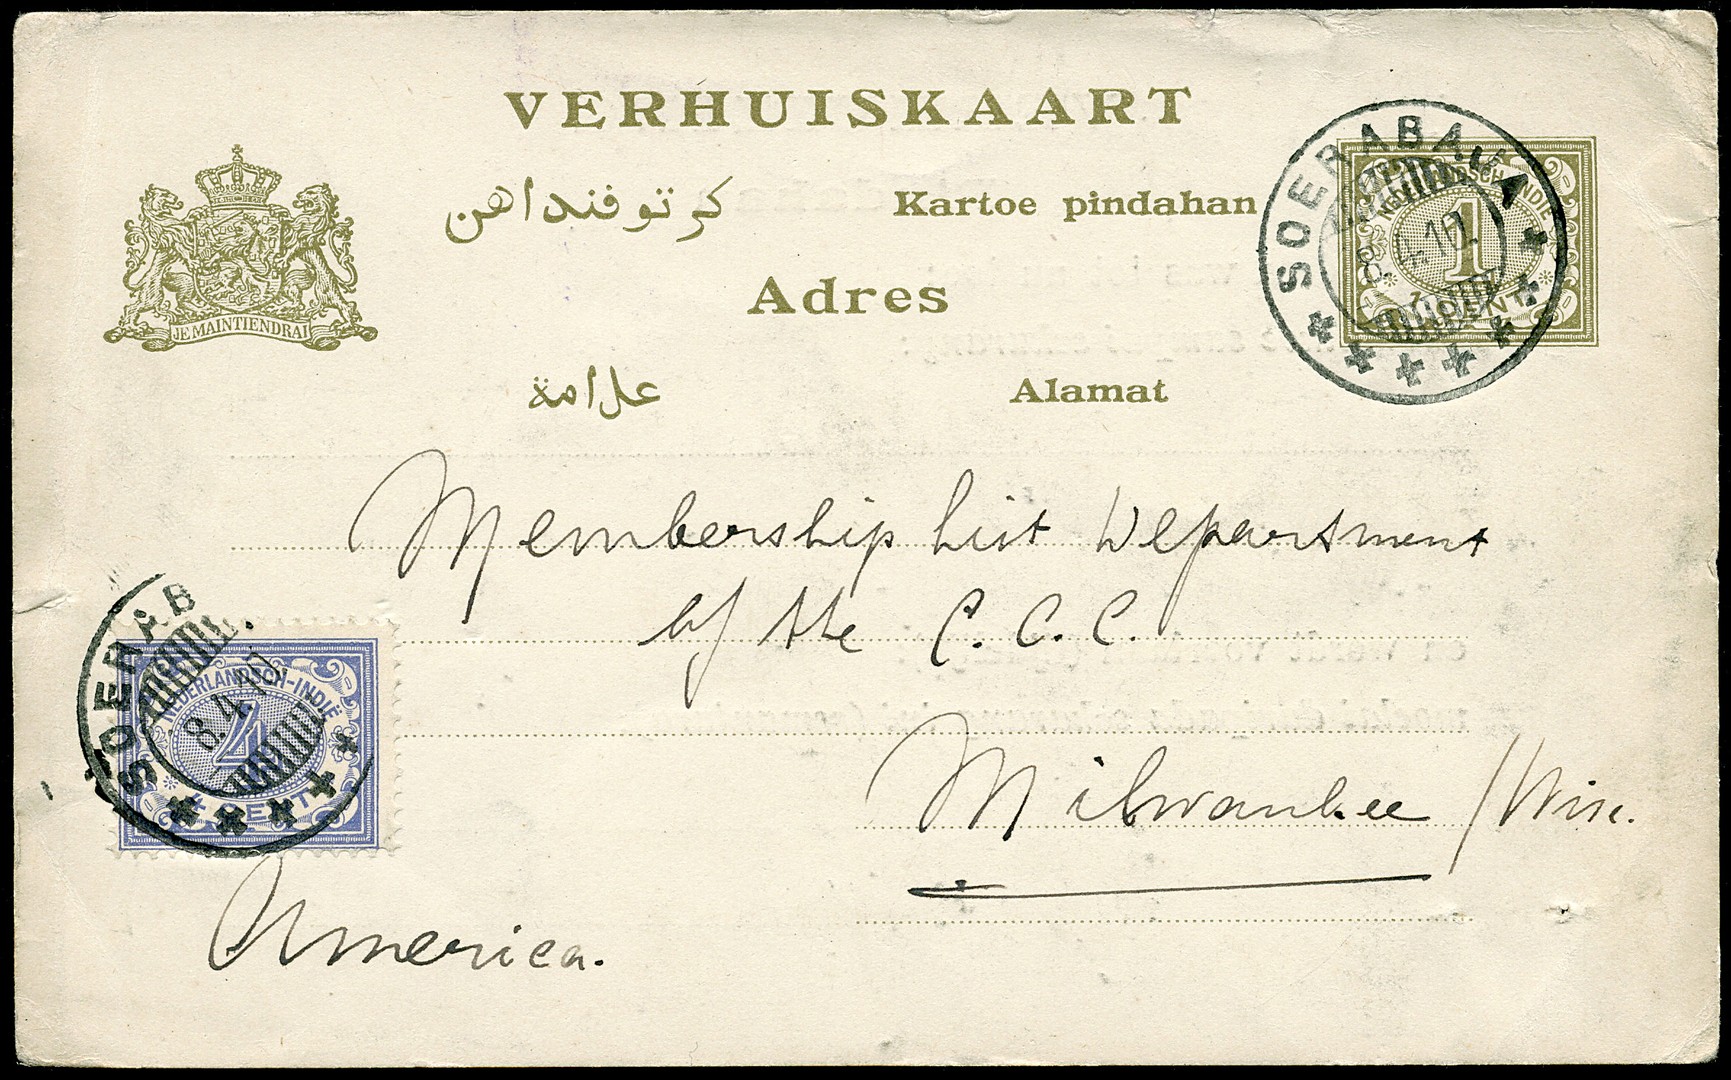 VERHUISKAART
كرتو فنداهن Kartoe pindahan
JE MAINTIENDRAI
Adres
علامة Alamat
SOERABAJA
8.4.10
NEDERLANDSCH-INDIË
1
CENT
Membership List Department
of the C.C.C.
Milwaukee / Wis.
America.
SOERAB
8.4.10
NEDERLANDSCH-INDIË
4
CENT